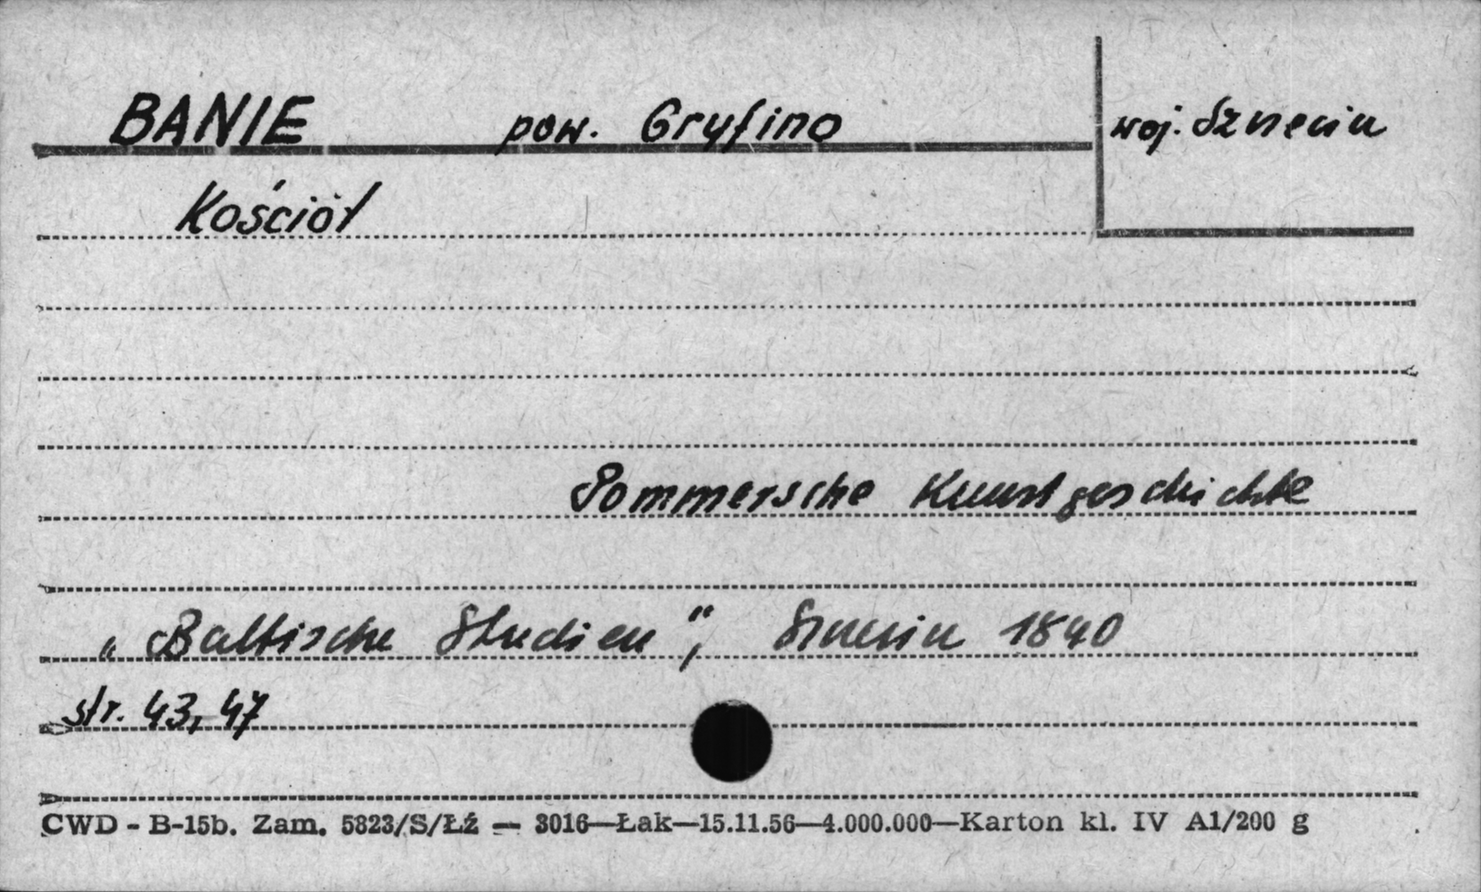 BANIE pow. Gryfino woj. Szczecin
Kościół
Pommersche Kunstgeschichte
„Baltische Studien", Szczecin 1840
str. 43, 47
CWD - B-15b. Zam. 5823/S/Łź — 3016—Łak—15.11.56—4.000.000—Karton kl. IV A1/200 g